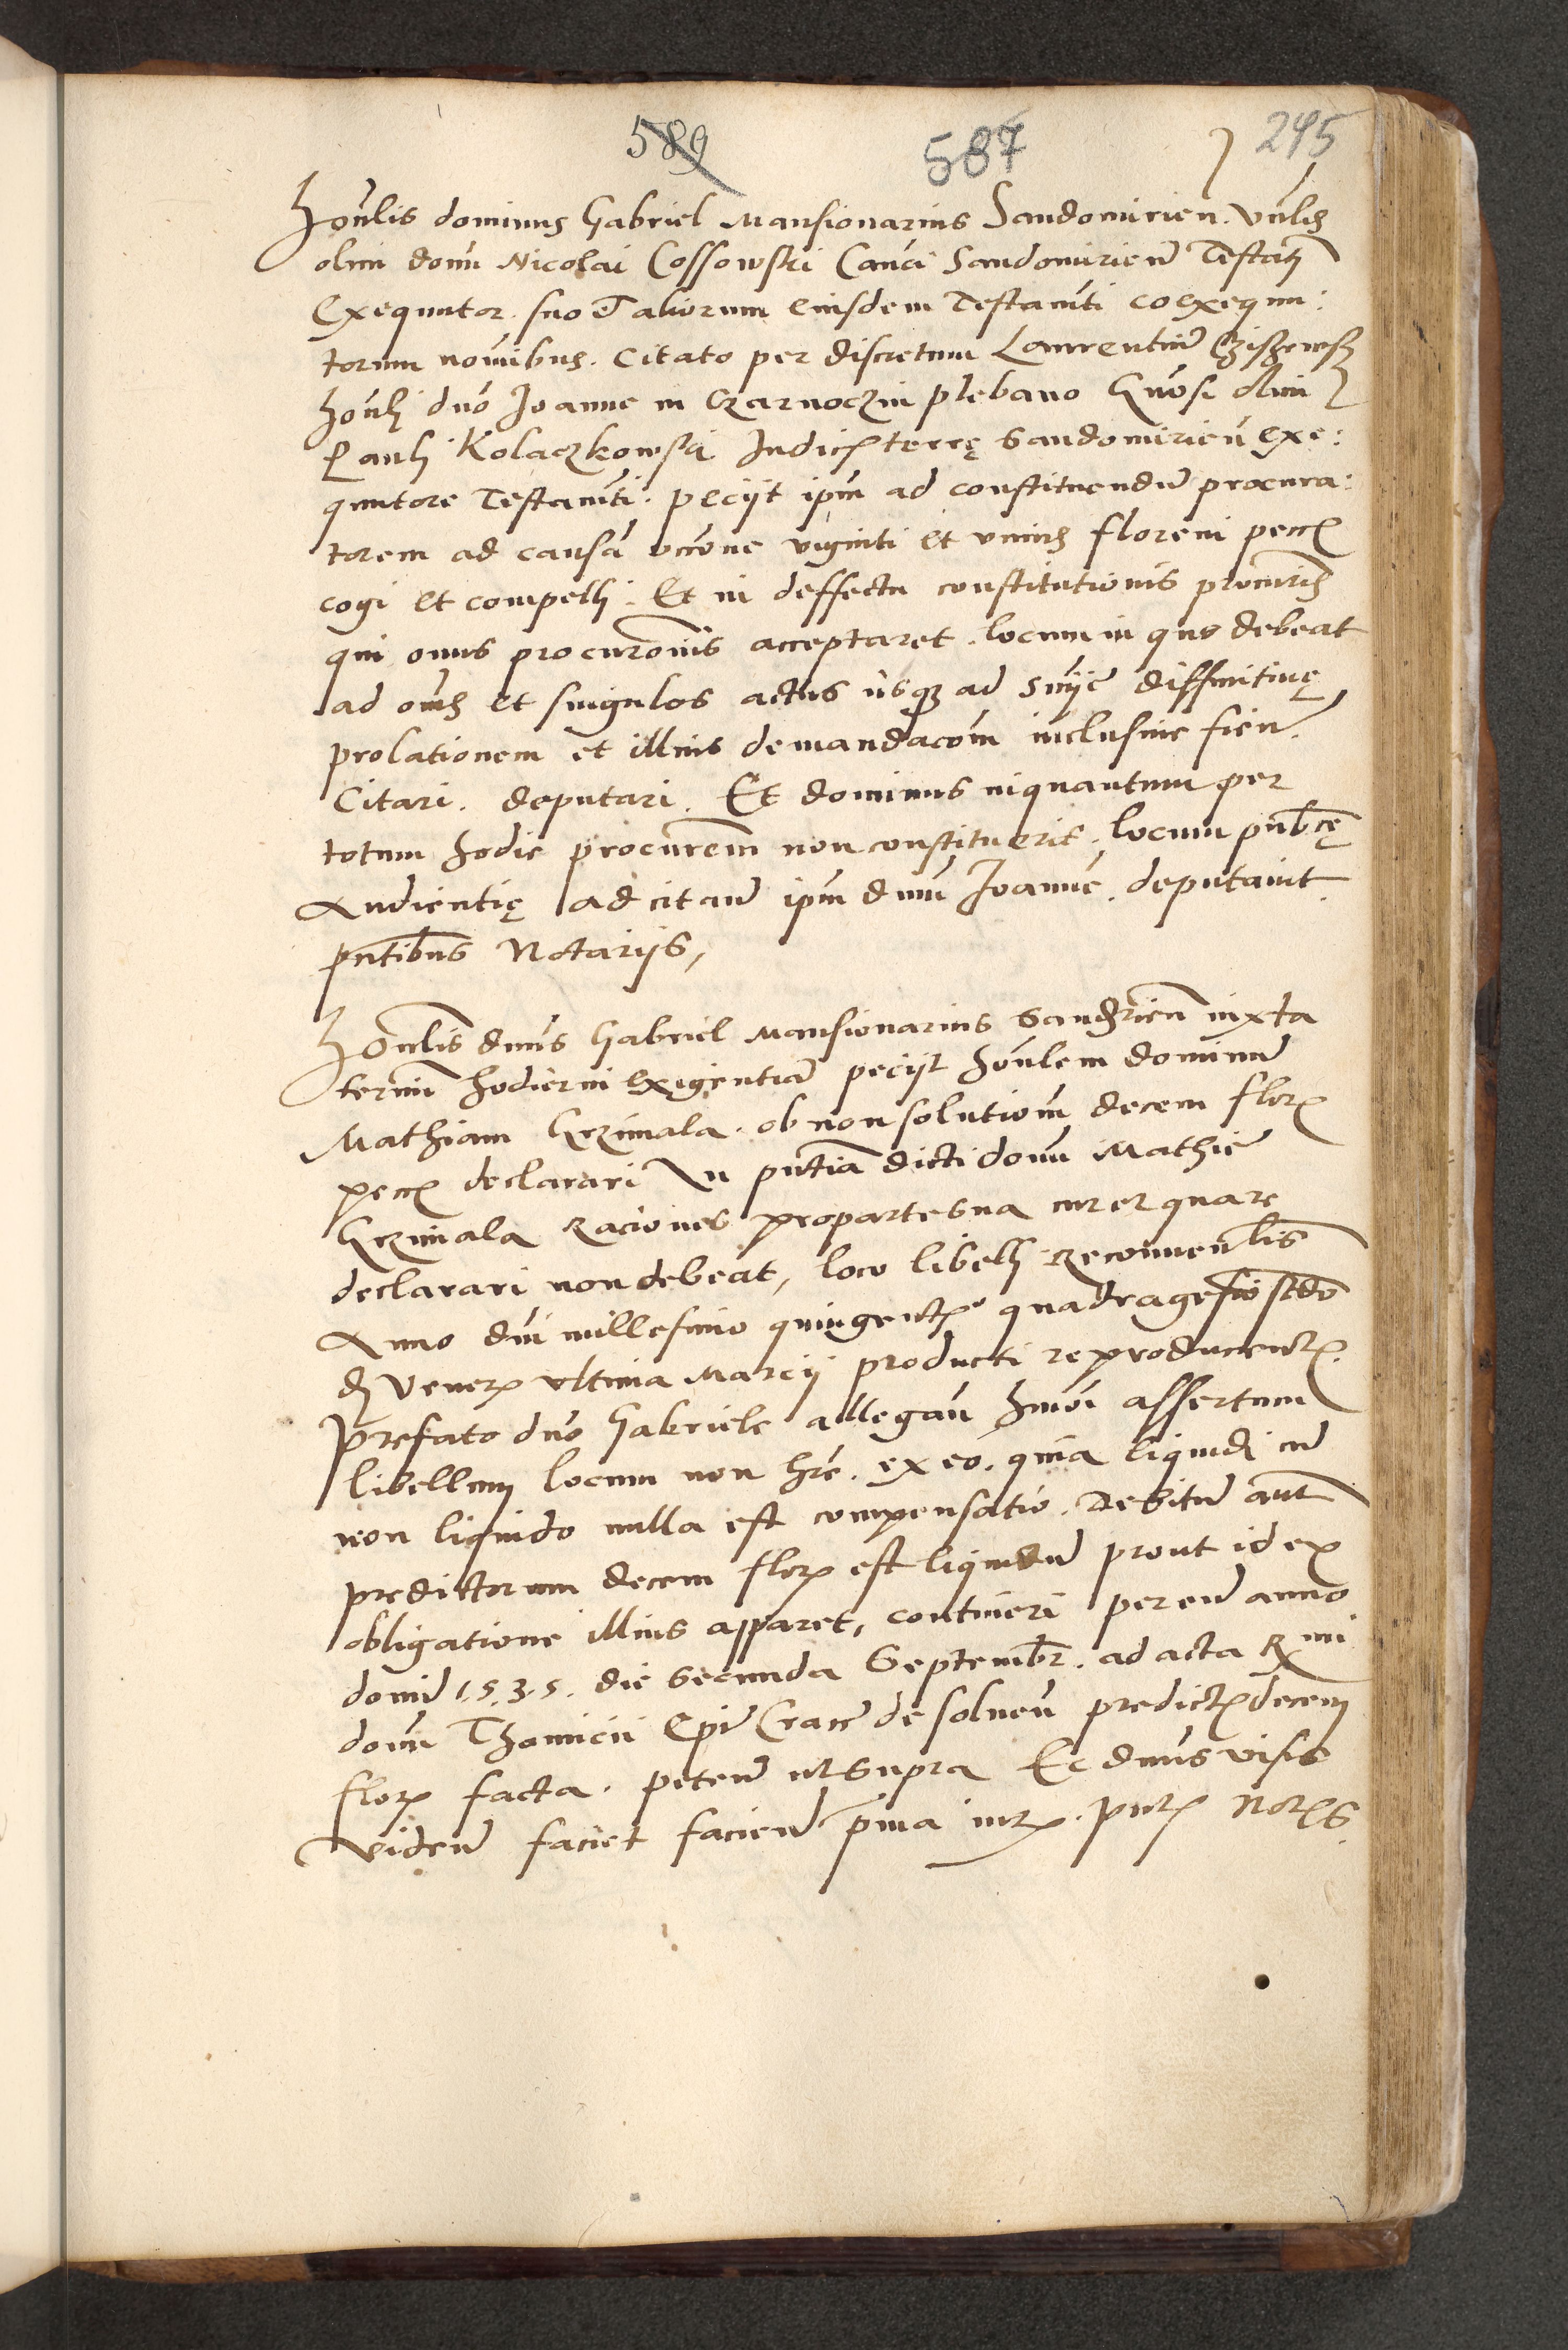 589 587 295
Honlis dominus Gabriel Mansionarius Sandomirien.
olim domi Nicolai Cossowski Canci Sandomirien Testati
Exequutor. suo et aliorum eiusdem Testamti coexequu:
torum nomibus. Citato per discretum Laurentiu
honli dno Joanne in Czarnoczin plebano Gnosi olim
Pauli Kolaczkowski Judicis terrę Sandomirien exe:
quutore Testamti: peciit ipm ad constituendu procura:
torem ad causa occone viginti et unius floreni pecc
cogi et compelli. Et in deffectu constitutionis procuris
qui onus procuronis acceptaret. locum in quo debeat
ad omes et singulos actus usq ad snije diffinitiuę
prolationem et illius demandacom inclusiue fien.
Citari. deputari. Et dominus inquantum per
totum hodie procurem non constituerit, locum publcę
Audientię ad citan ipm dnum Joanne. deputauit.
pntibus Notarijs,
Honlis dnus Gabriel Mansionarius Sandrien iuxta
termi hodierni exigentia peciit honlem dominu
Mathiam Grzimala. ob non solutiom decem flor
pecc declarari In pntia dicti domi Mathie
Grzimala raciones pro parte sua cur et quare
declarari non debeat, loco libelli reconuenlis
Anno dni millesimo quingent quadragesio scdo
di Vener ultima Marcij producti reproducent.
Prefato dno Gabriele allegan hmoi assertum
libellum locum non hre. ex eo. quia liquidi cu
non liquido nulla est compensatio. Debitu aut
predictorum decem flor est liquidu prout id ex
obligatione illius apparet, contineri per eu anno
domi 1.5.3.5. die secunda Septembr. ad acta Rmi
domi Thomicii Epi Cracc de soluen predict decem
flor facta. peten ut supra Et dnus visis
viden faciet facien pma iur. pnt Notis